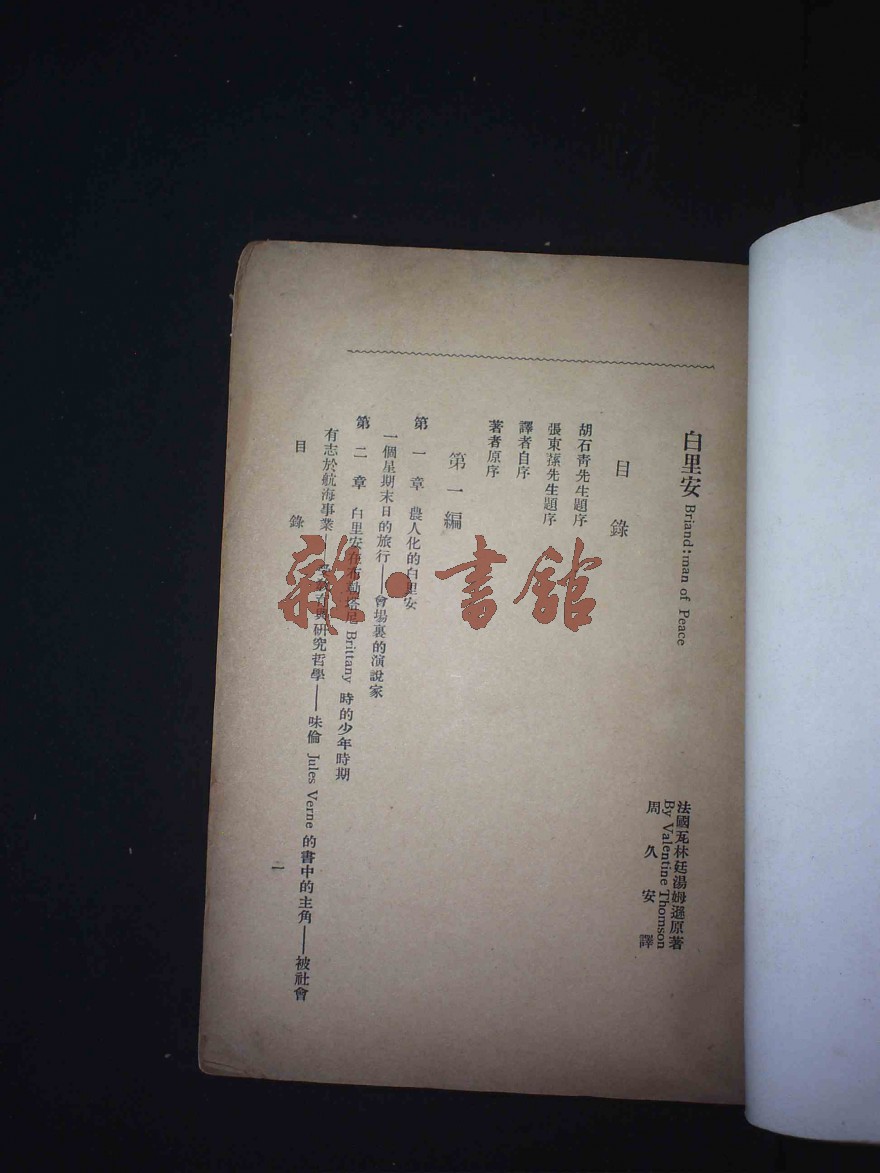 白里安 Briand: man of Peace
法國瓦林廷湯姆遜原著
By Valentine Thomson
周久安譯
目錄
胡石青先生題序
張東蓀先生題序
譯者自序
著者原序
第一編
第一章 農人化的白里安
一個星期末日的旅行——會場裏的演說家
第二章 白里安在布勒塔尼 Brittany 時的少年時期
有志於航海事業——與研究哲學——味倫 Jules Verne 的書中的主角——被社會
目錄
一
雜·書館